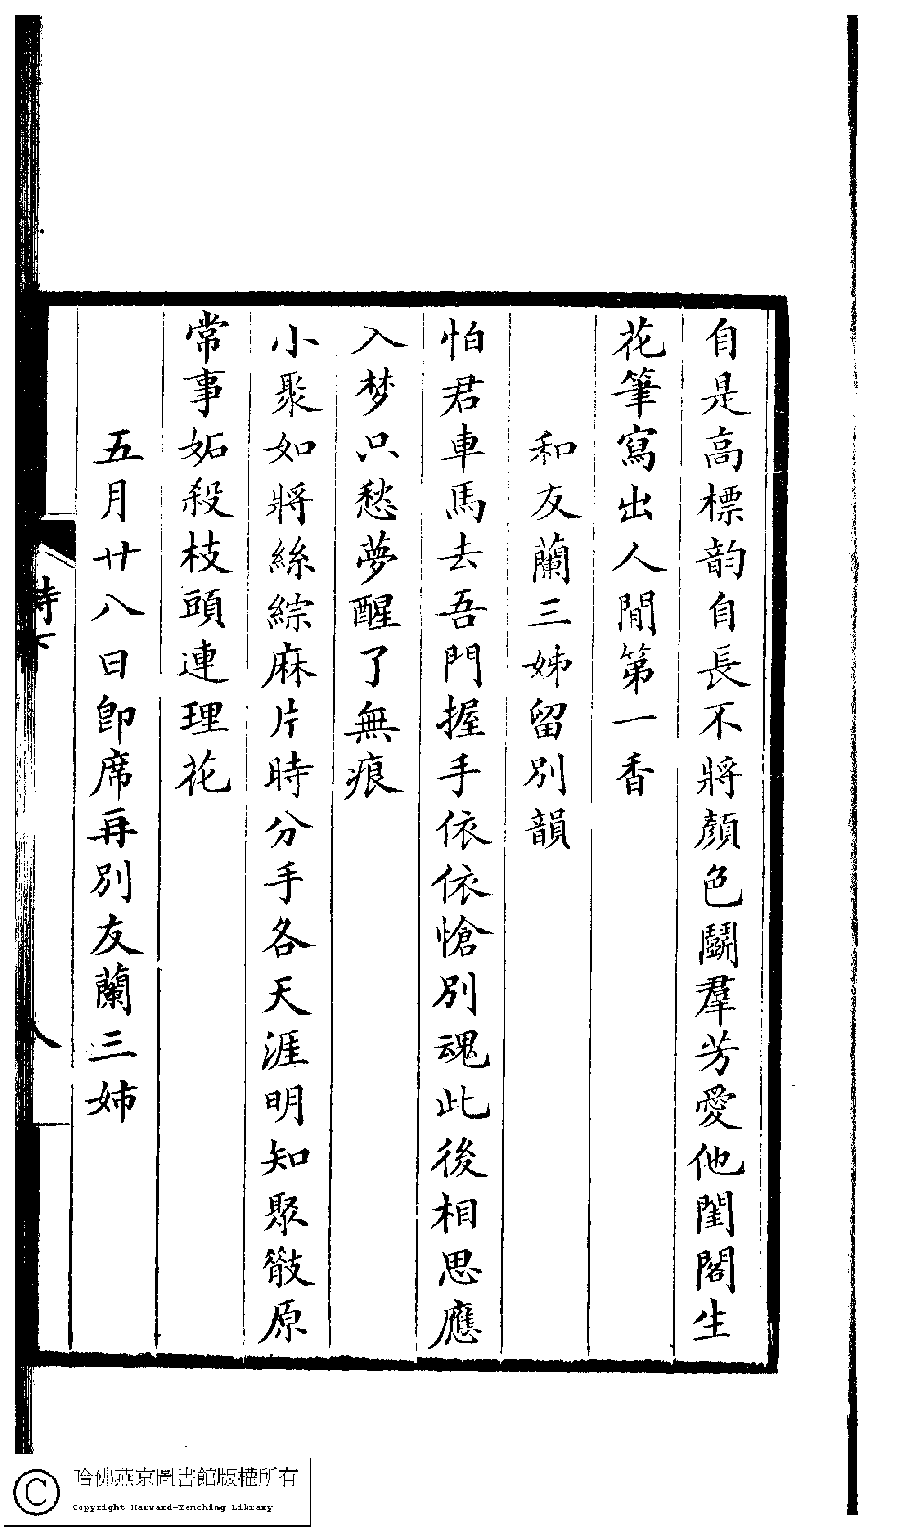 自是高標韵自長不將顏色鬭羣芳愛他閨閣生
花筆寫出人閒第一香
和友蘭三姊留別韻
怕君車馬去吾門握手依依愴別魂此後相思應
入梦只愁夢醒了無痕
小聚如將絲綜麻片時分手各天涯明知聚散原
常事妬殺枝頭連理花
五月廿八日卽席再別友蘭三姊
詩下
八
哈佛燕京圖書館版權所有
Copyright Harvard-Yenching Library